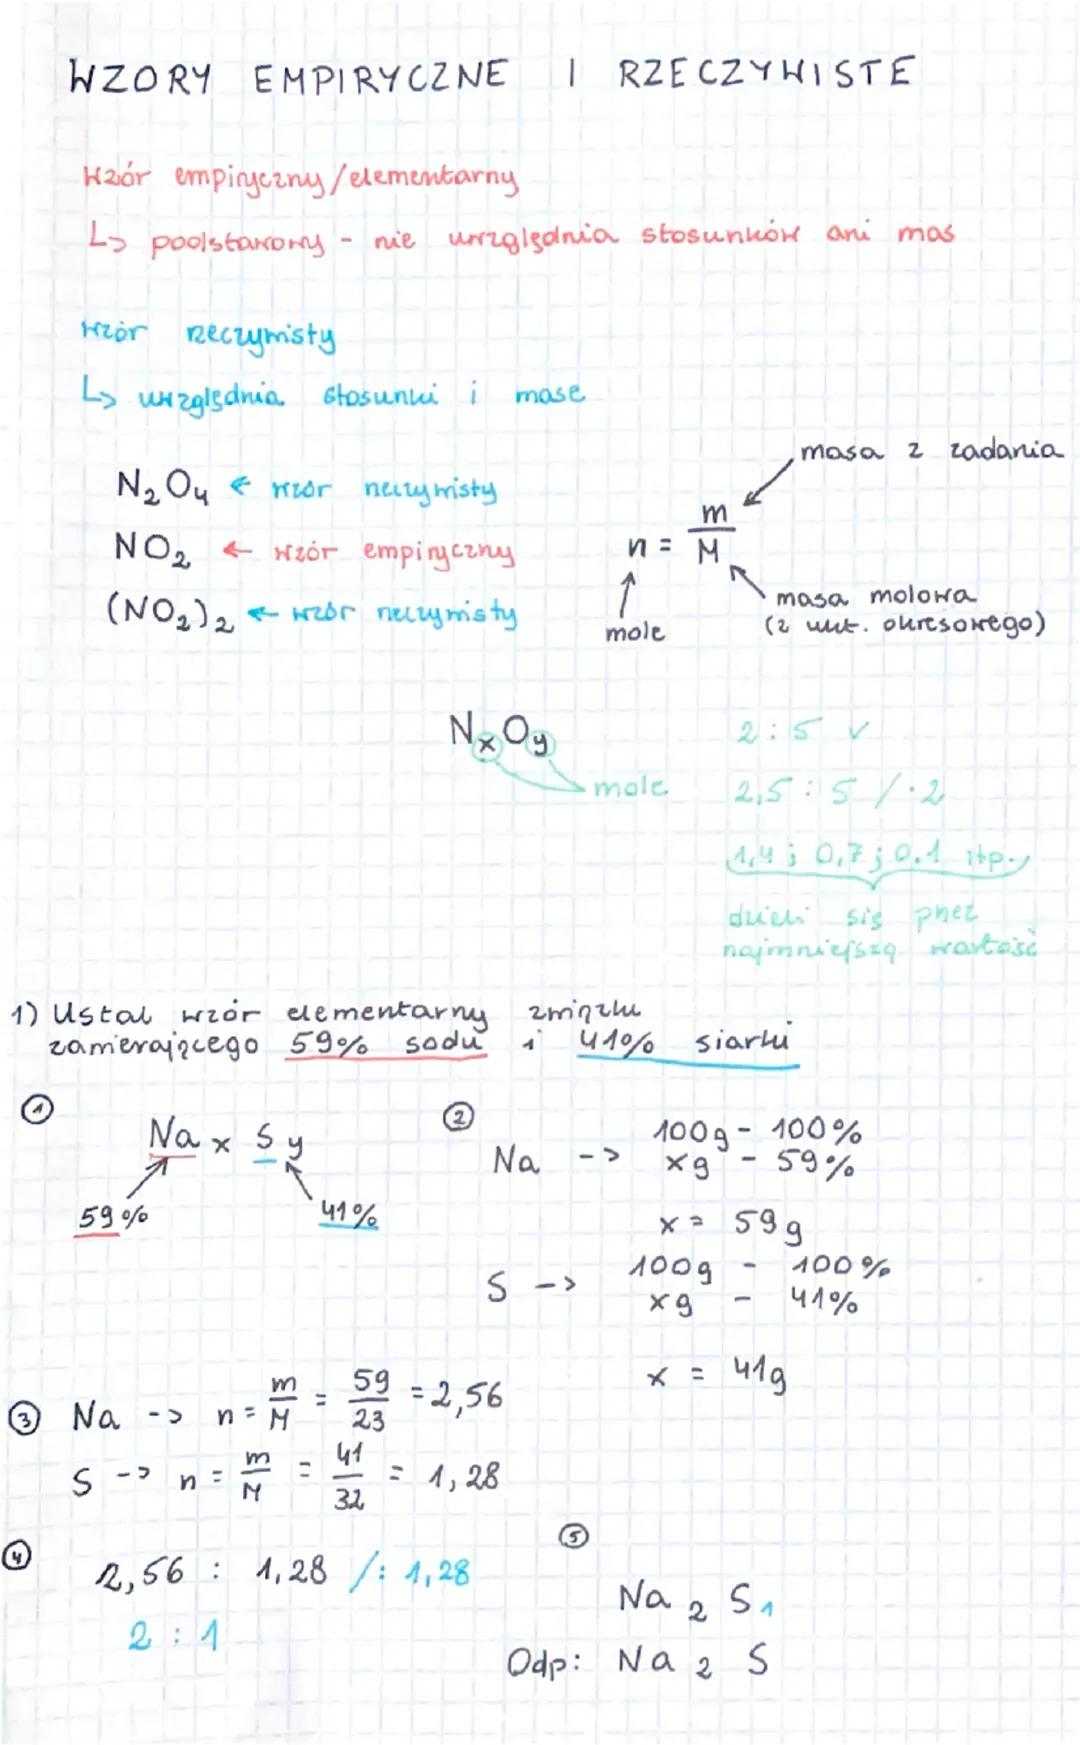 WZORY EMPIRYCZNE I RZECZYWISTE
Wzór empiryczny/elementarny
↳ podstawowy - nie uwzględnia stosunków ani mas
wzór rzeczywisty
↳ uwzględnia stosunki i masę
N₂O₄ ← wzór rzeczywisty
NO₂ ← wzór empiryczny
(NO₂)₂ ← wzór rzeczywisty
masa z zadania
n = m/M
mole
masa molowa
(z ukł. okresowego)
NₓOᵧ
mole
2 : 5 ✓
2,5 : 5 / · 2
1,4 ; 0,7 ; 0,1 itp.
dzieli się przez
najmniejszą wartość
1) Ustal wzór elementarny związku
zawierającego 59% sodu i 41% siarki
①
Na x S y
59% 41%
②
Na -> 100g - 100%
xg - 59%
x = 59g
S -> 100g - 100%
xg - 41%
x = 41g
③ Na -> n = m/M = 59/23 = 2,56
S -> n = m/M = 41/32 = 1,28
④ 2,56 : 1,28 /: 1,28
2 : 1
⑤
Na ₂ S ₁
Odp: Na ₂ S